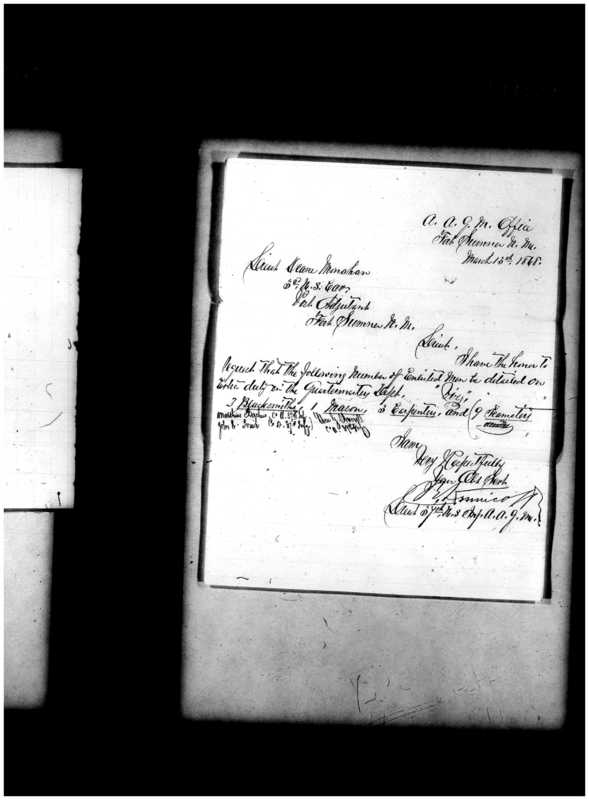 A. A. Q. M. Office
Fort Sumner N. M.
March 13th, 1868.
Lieut Deane Monahan
3d, U. S. Cav,
Post Adjutant
Fort Sumner N. M.
Lieut.
I have the honor to
request that the following number of Enlisted Men be detailed on
Extra duty in the Quartermasters Dept. Viz;
3 Blacksmiths, 1 Mason, 3 Carpenters, and 9 Teamsters
John
I am
Very Respectfully
Your Obt Servt
Lieut 37th U.S Inf. A. A. Q. M.